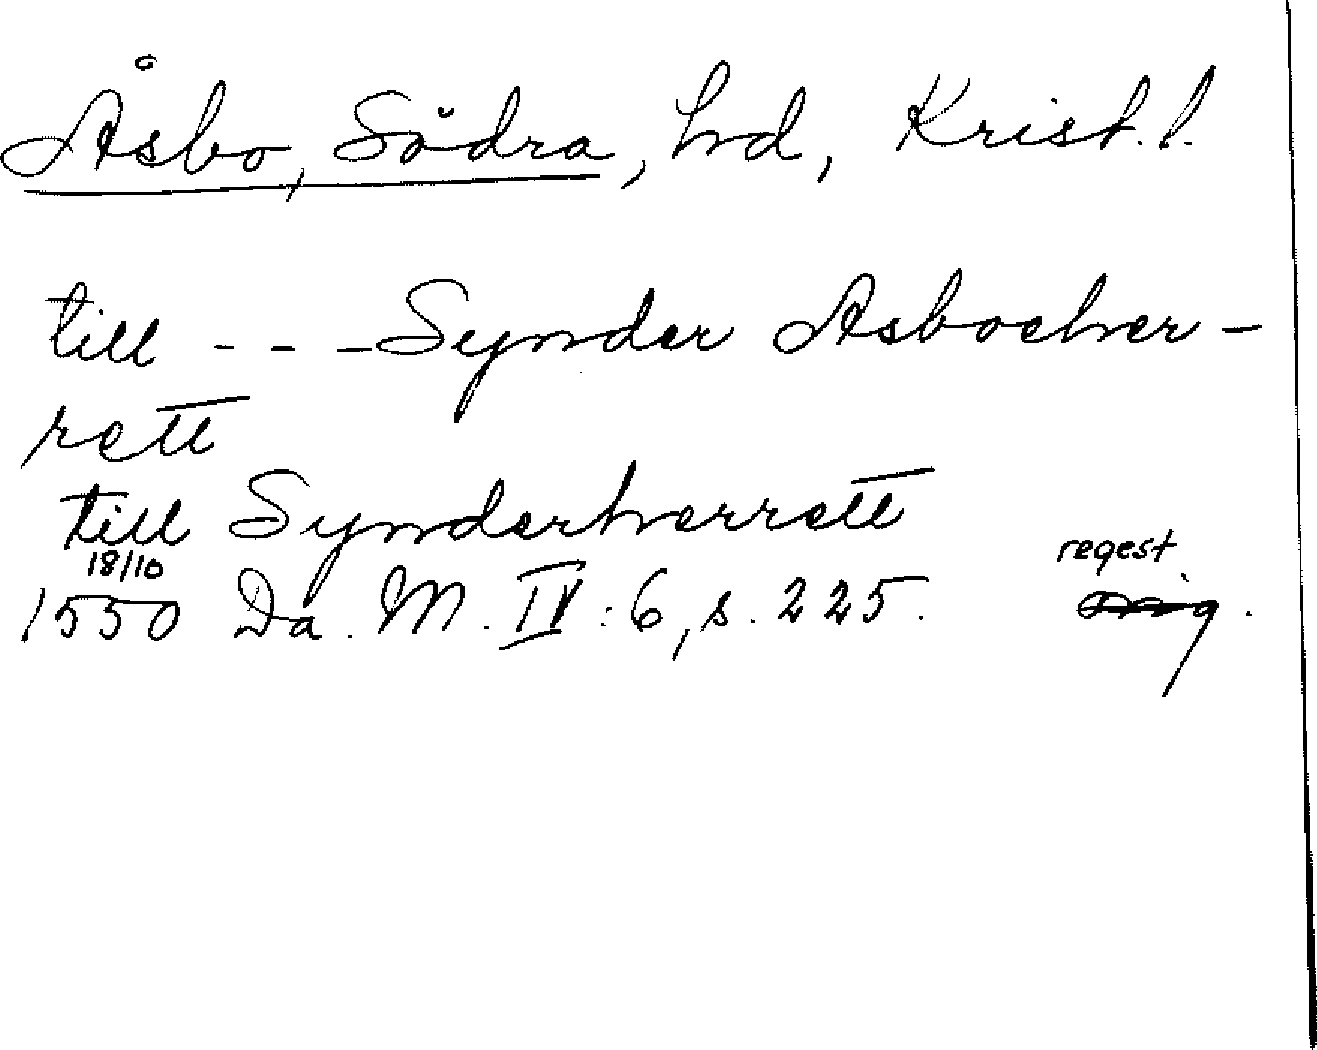 Åsbo, Södra, hd, Krist. l.
till - - - Synder Asboeher-
rett
till Synderherrett
18/10 regest
1550 Da. M. IV : 6, s. 225. orig.